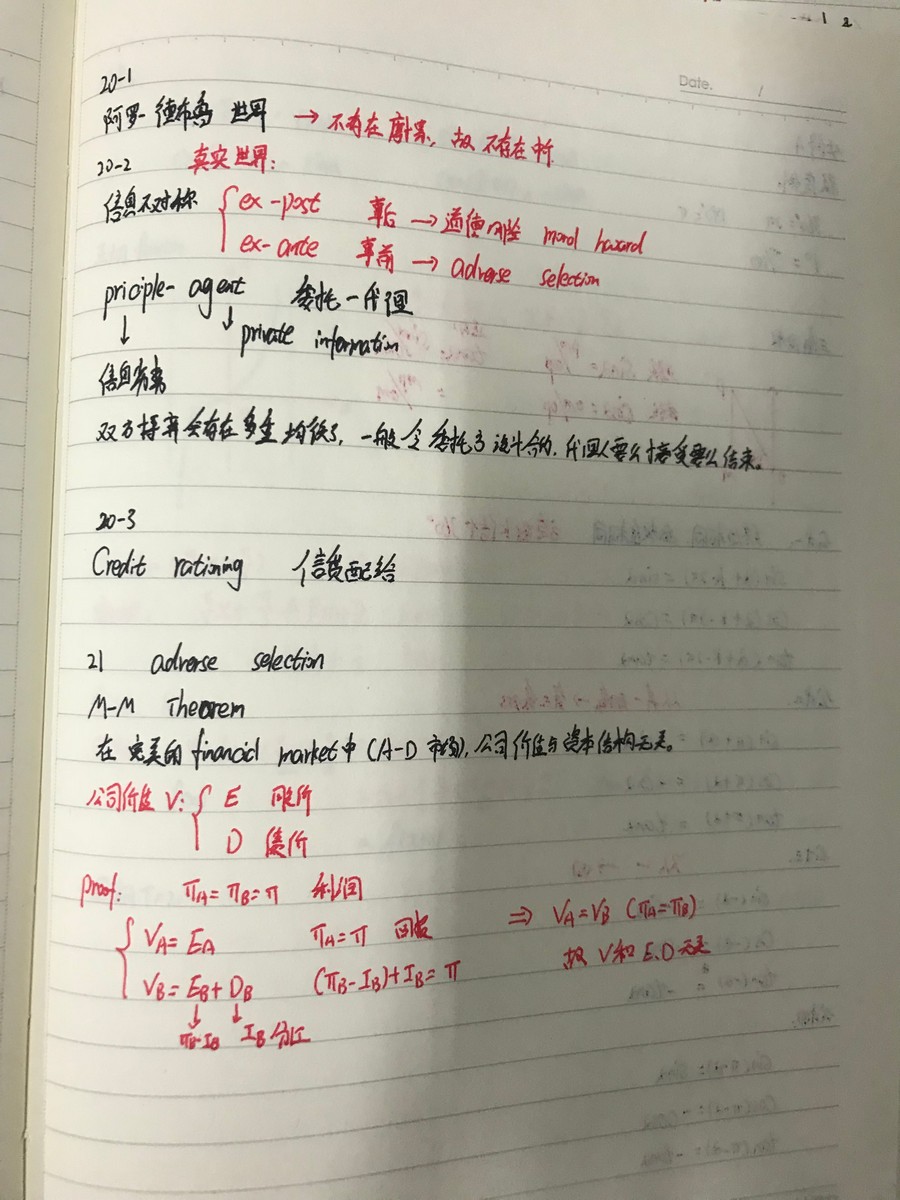 Date.
20-1
阿罗-德布鲁 世界 → 不存在摩擦，故 不存在中介
20-2 真实世界：
信息不对称 { ex-post 事后 → 道德风险 moral hazard
ex-ante 事前 → adverse selection
priciple-agent 委托-代理
↓ ↓ private information
信息劣势
双方博弈会存在多重均衡，一般令委托方设计合约，代理人要么接受要么结束。
20-3
Credit rationing 信贷配给
21 adverse selection
M-M Theorem
在完美的 financial market中（A-D市场），公司价值与资本结构无关。
公司价值 V: { E 股价
D 债价
Proof: π_A=π_B=π 利润
{ V_A=E_A π_A=π 回报 ⇒ V_A=V_B (π_A=π_B)
V_B=E_B+D_B (π_B-I_B)+I_B=π 故 V和E.D无关
↓ ↓
π_B-I_B I_B